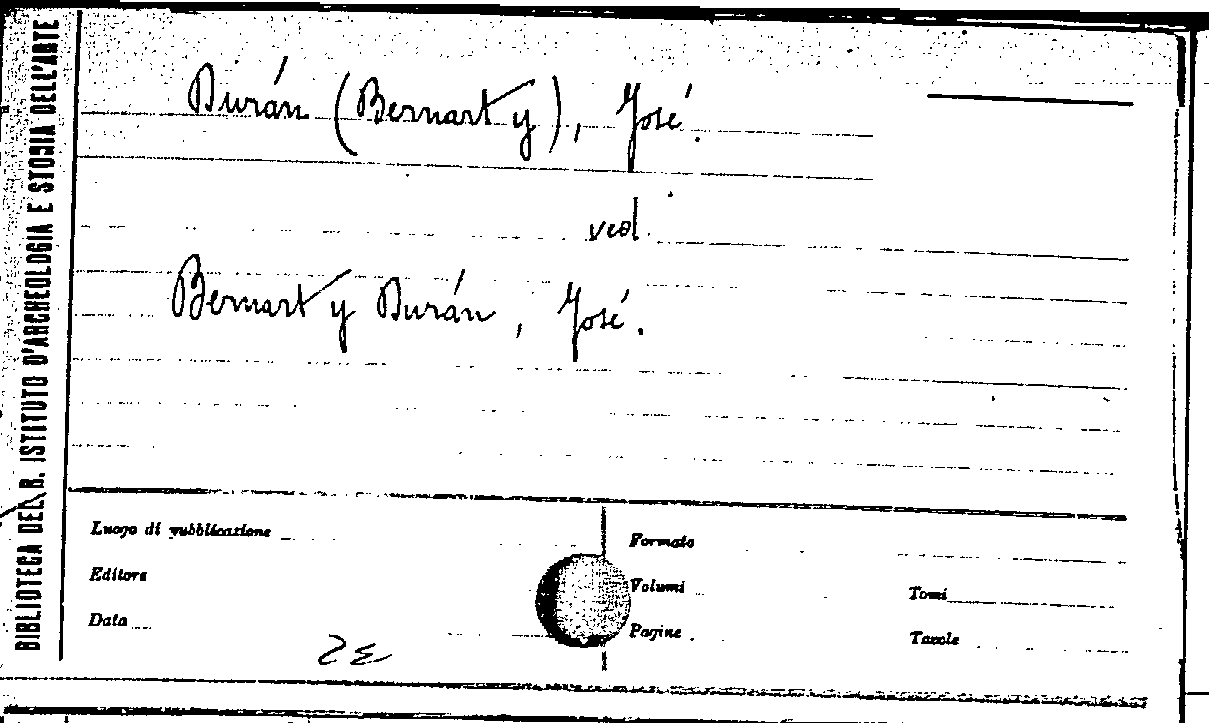 BIBLIOTECA DEL R. ISTITUTO D'ARCHEOLOGIA E STORIA DELL'ARTE
Durán (Bernart y), José.
ved.
Bernart y Durán, José.
Luogo di pubblicazione
Formato
Editore
Volumi
Tomi
Data
Pagine
Tavole